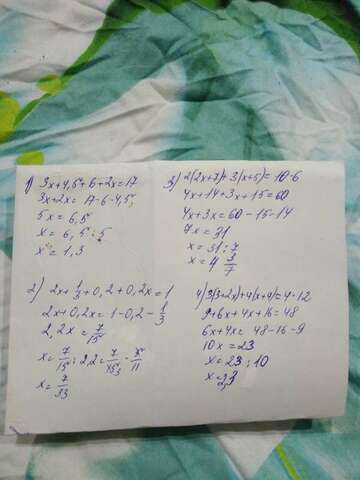 1) 3x+4,5+6+2x=17
3x+2x= 17-6-4,5
5x = 6,5
x = 6,5 : 5
x = 1,3
2) 2x+1/3+0,2+0,2x=1
2x+0,2x= 1-0,2-1/3
2,2x= 7/15
x= 7/15 : 2,2= 7/15 · 5/11
x= 7/33
3) 2(2x+7)+3(x+5)= 10·6
4x+14+3x+15=60
4x+3x=60-15-14
7x=31
x=31:7
x= 4 3/7
4) 3(3+2x)+4(x+4)=4·12
9+6x+4x+16=48
6x+4x= 48-16-9
10x=23
x=23:10
x=2,3